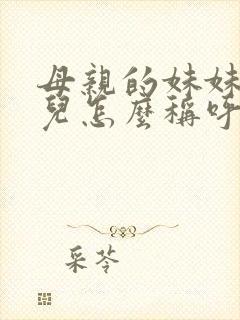 母親的妹妹
兒怎麼稱呼
采苓